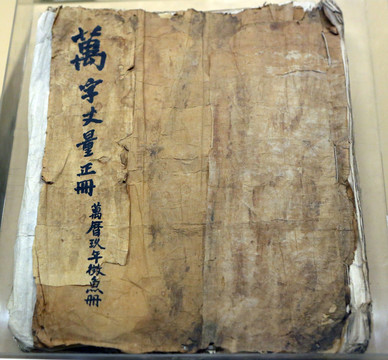 萬字丈量正冊
萬曆玖年微魚冊